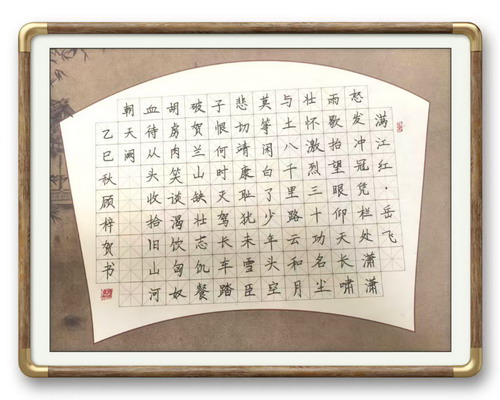 满江红·岳飞
怒发冲冠凭栏处潇潇
雨歇抬望眼仰天长啸
壮怀激烈三十功名尘
与土八千里路云和月
莫等闲白了少年头空
悲切靖康耻犹未雪臣
子恨何时灭驾长车踏
破贺兰山缺壮志饥餐
胡虏肉笑谈渴饮匈奴
血待从头收拾旧山河
朝天阙
乙巳秋顾梓贺书